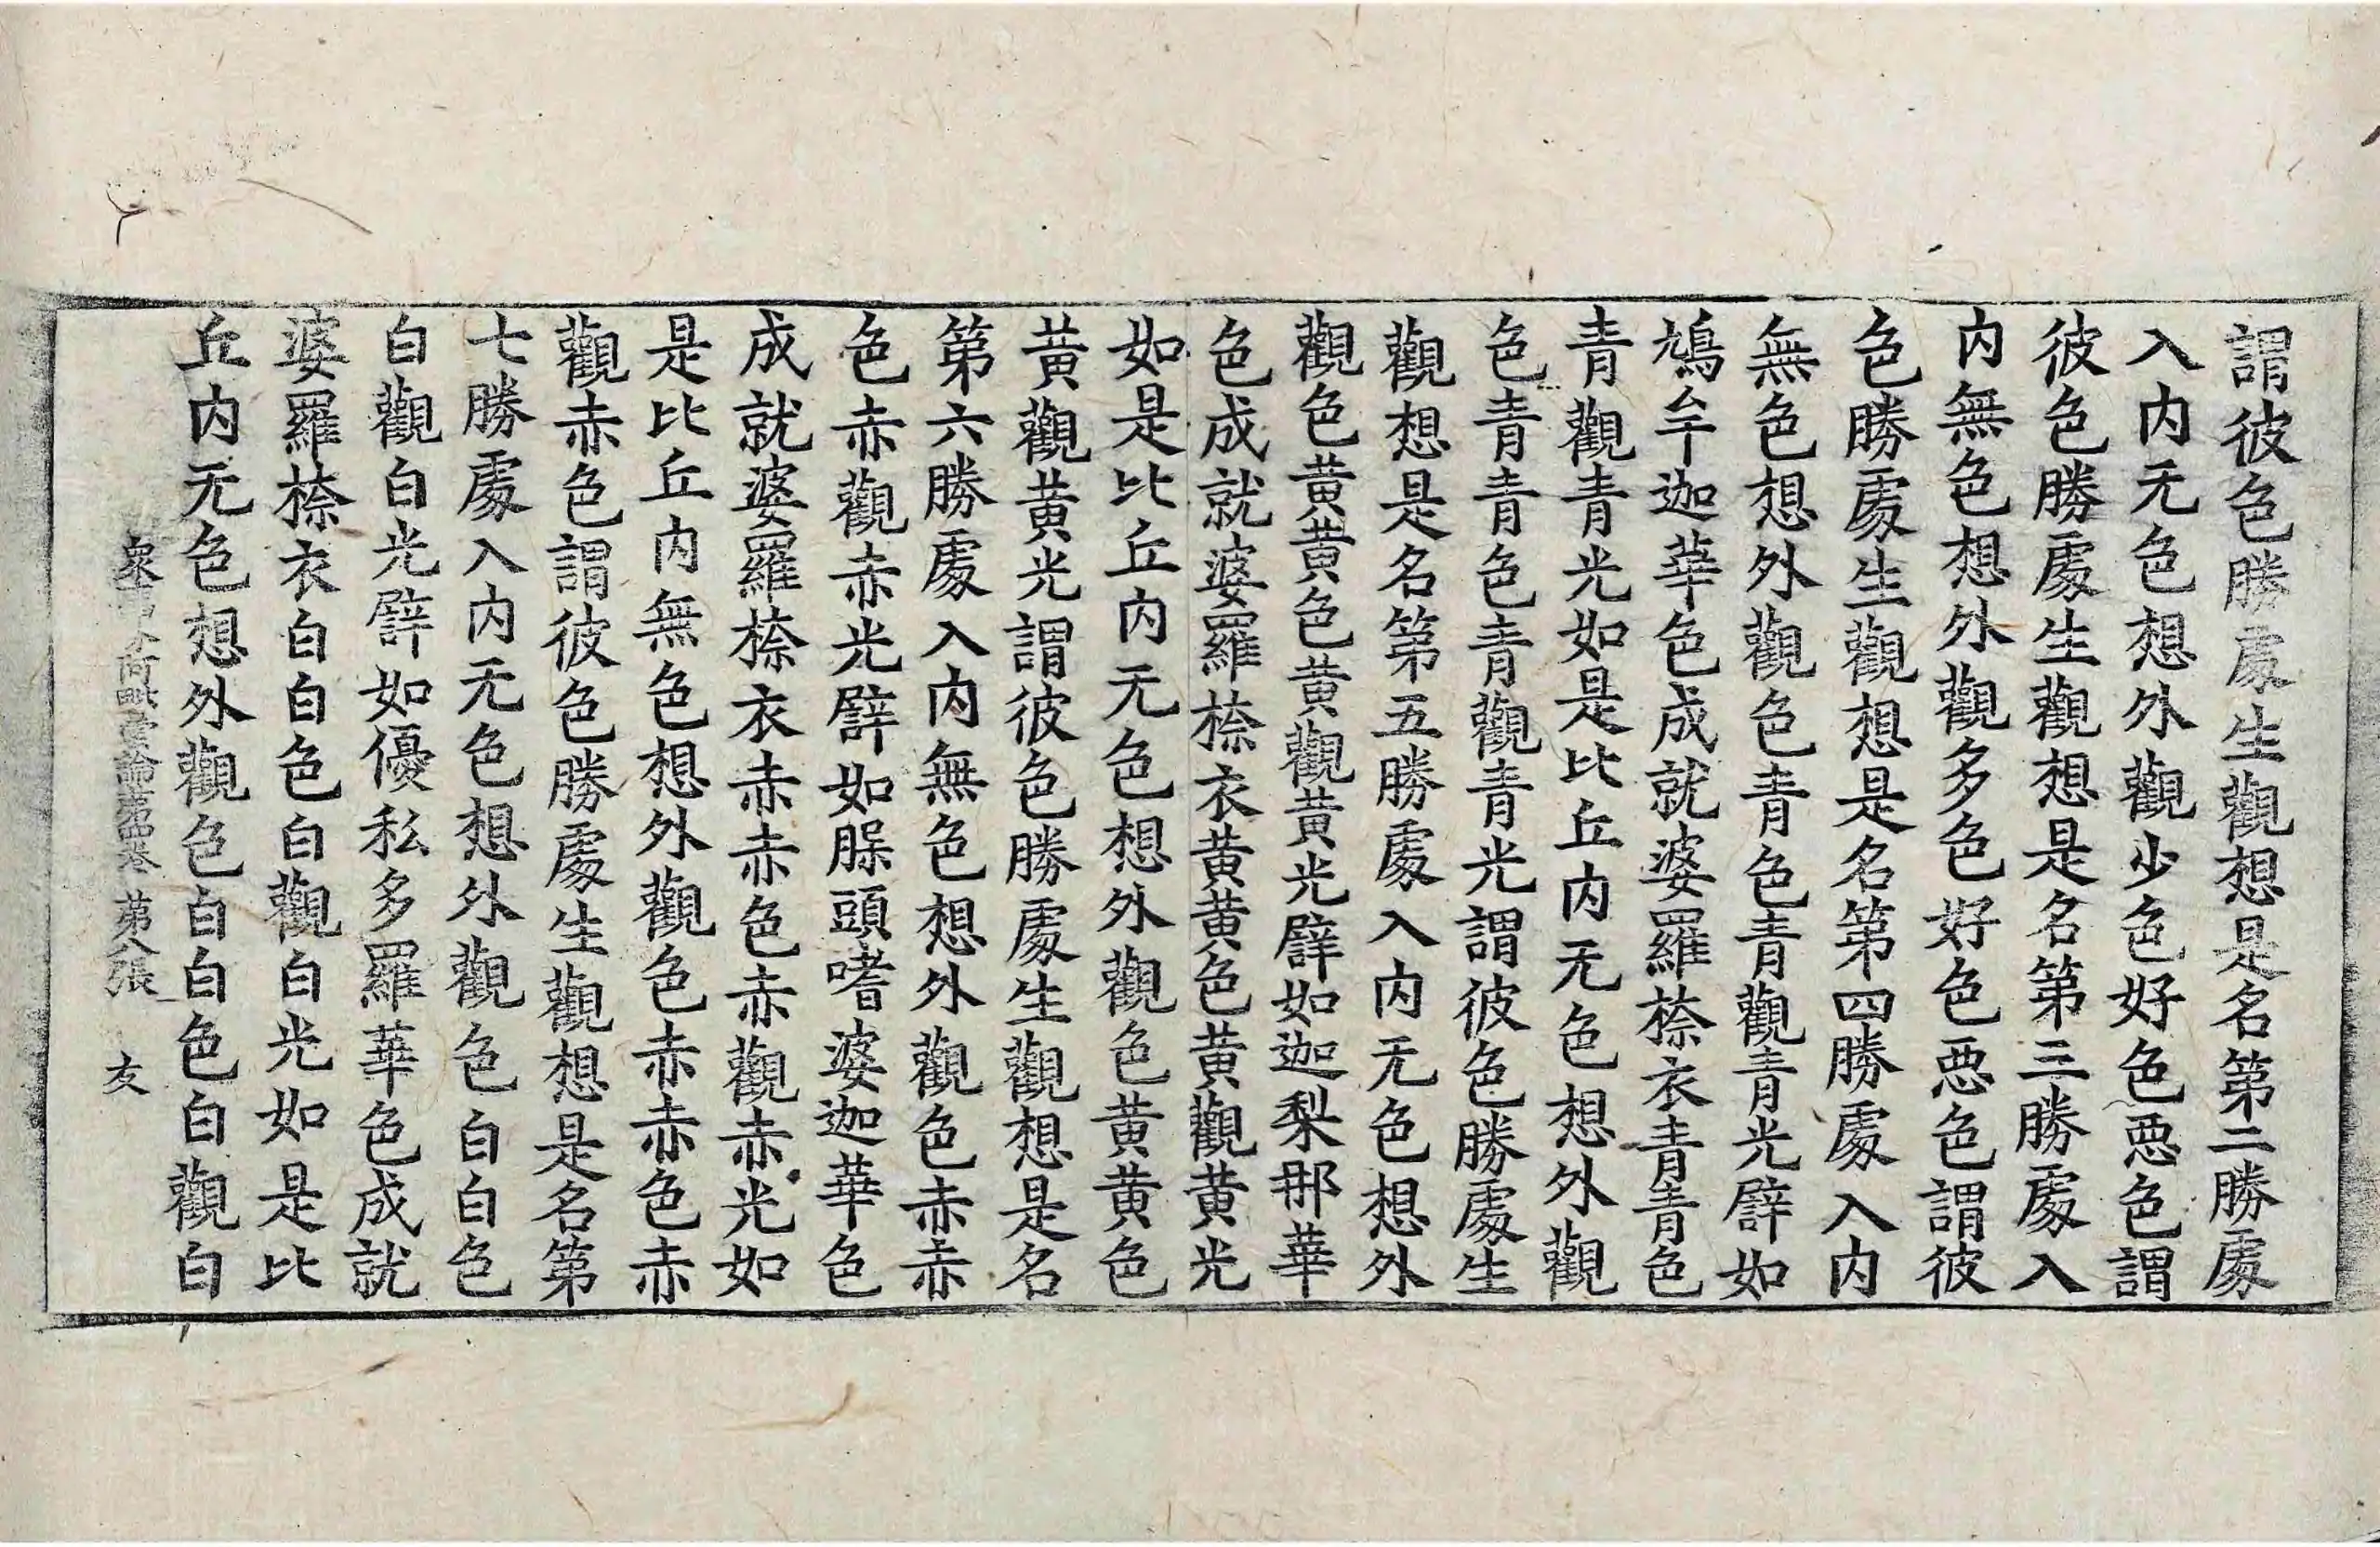 謂彼色勝處生觀想是名第二勝處
入內无色想外觀少色好色惡色謂
彼色勝處生觀想是名第三勝處入
內無色想外觀多色好色惡色謂彼
色勝處生觀想是名第四勝處入內
無色想外觀色青色青觀青光譬如
鳩牟迦華色成就婆羅㮈衣青青色
青觀青光如是比丘內无色想外觀
色青青色青觀青光謂彼色勝處生
觀想是名第五勝處入內无色想外
觀色黃黃色黃觀黃光譬如迦梨那華
色成就婆羅㮈衣黃黃色黃觀黃光
如是比丘內无色想外觀色黃黃色
黃觀黃光謂彼色勝處生觀想是名
第六勝處入內無色想外觀色赤赤
色赤觀赤光譬如䐗頭嗜婆迦華色
成就婆羅㮈衣赤赤色赤觀赤光如
是比丘內無色想外觀色赤赤色赤
觀赤色謂彼色勝處生觀想是名第
七勝處入內无色想外觀色白白色
白觀白光譬如優私多羅華色成就
婆羅㮈衣白白色白觀白光如是比
丘內无色想外觀色白白色白觀白
衆事分阿毗曇論第四卷 第八張 友